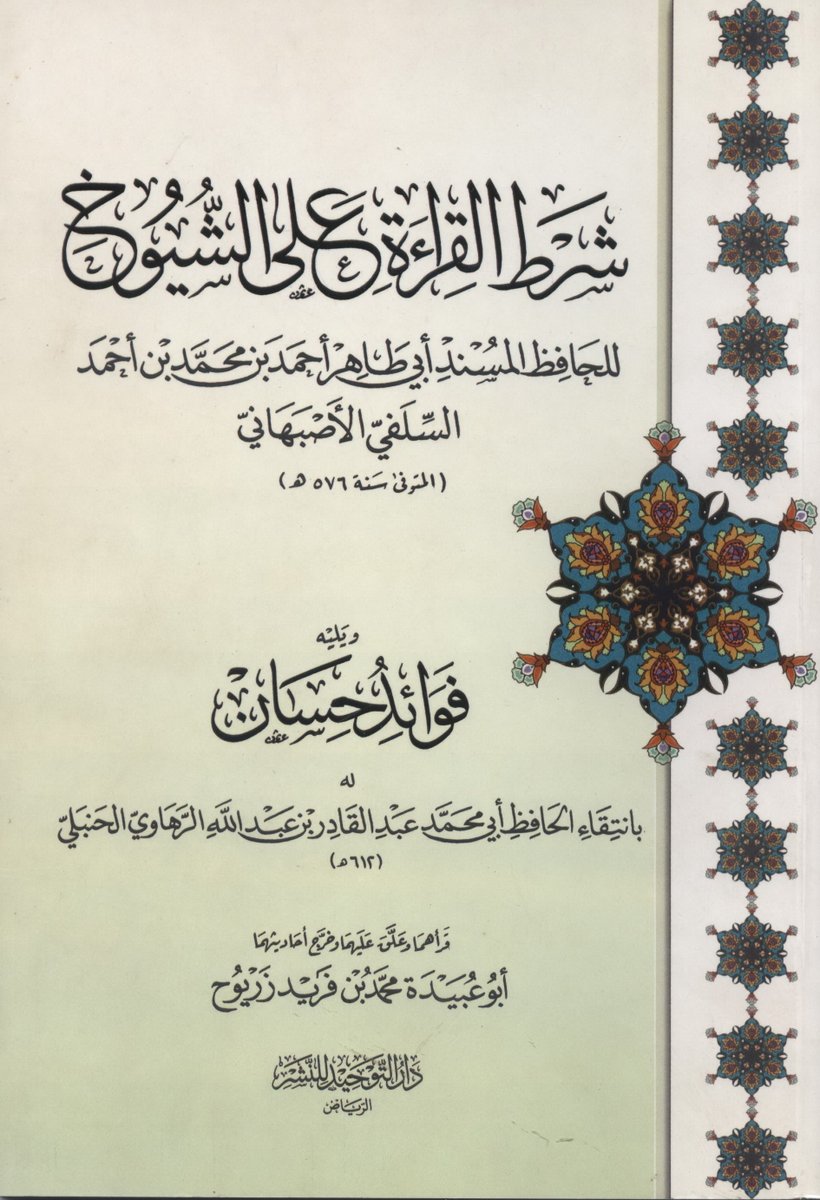 شَرطُ القِراءَةِ عَلى الشُّيُوخِ
للحَافِظِ المُسْنِدِ أبي طَاهِر أحمَد بَن محمَّد بْن أحْمَد
السِّلَفيّ الأَصْبَهَانيّ
(المتوفى سَنة ٥٧٦ هـ)
ويَليْه
فَوَائِدُ حِسَان
له
بانتِقَاءِ الحَافِظِ أبي محمَّد عَبْدِ القَادِر بْن عَبْدِ اللَّهِ الرّهَاويّ الحَنبَليّ
(٦١٢هـ)
قرأهما وعَلَّق عَليهما وخرَّج أحَاديثهما
أبُو عُبَيْدَة محمَّدُ بْن فَريْد زَرْيُوح
دَارُ التَّوْحِيْدِ للنَّشْر
الريَاض